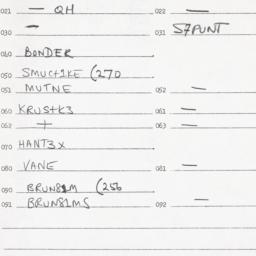 021 — QH 022 —
030 — 031 S7PUNT
040 BONDER
050 SMUC+1KE (270
051 MUTNE 052 —
060 KRUS+K3 061 —
062 + 063 —
070 HANT3X
080 VANE 081 —
090 BRUN81M (256
091 BRUN81MS 092 —